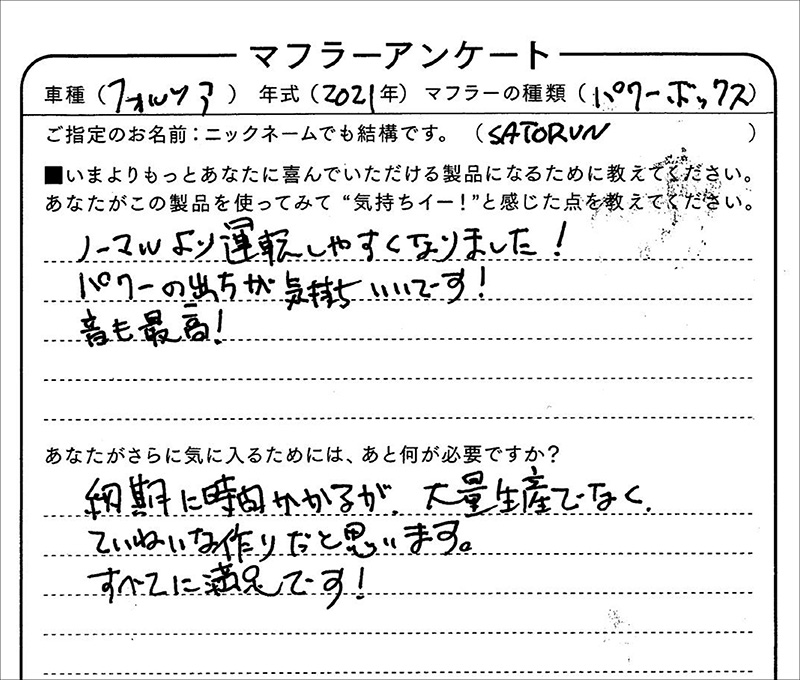 マフラーアンケート
車種（フォルツァ） 年式（2021年） マフラーの種類（パワーボックス）
ご指定のお名前：ニックネームでも結構です。（SATORUN）
■いまよりもっとあなたに喜んでいただける製品になるために教えてください。
あなたがこの製品を使ってみて“気持ちイー！”と感じた点を教えてください。
ノーマルより運転しやすくなりました！
パワーの出方が気持ちいいです！
音も最高！
あなたがさらに気に入るためには、あと何が必要ですか？
納期に時間かかるが、大量生産でなく、
ていねいな作りだと思います。
すべてに満足です！